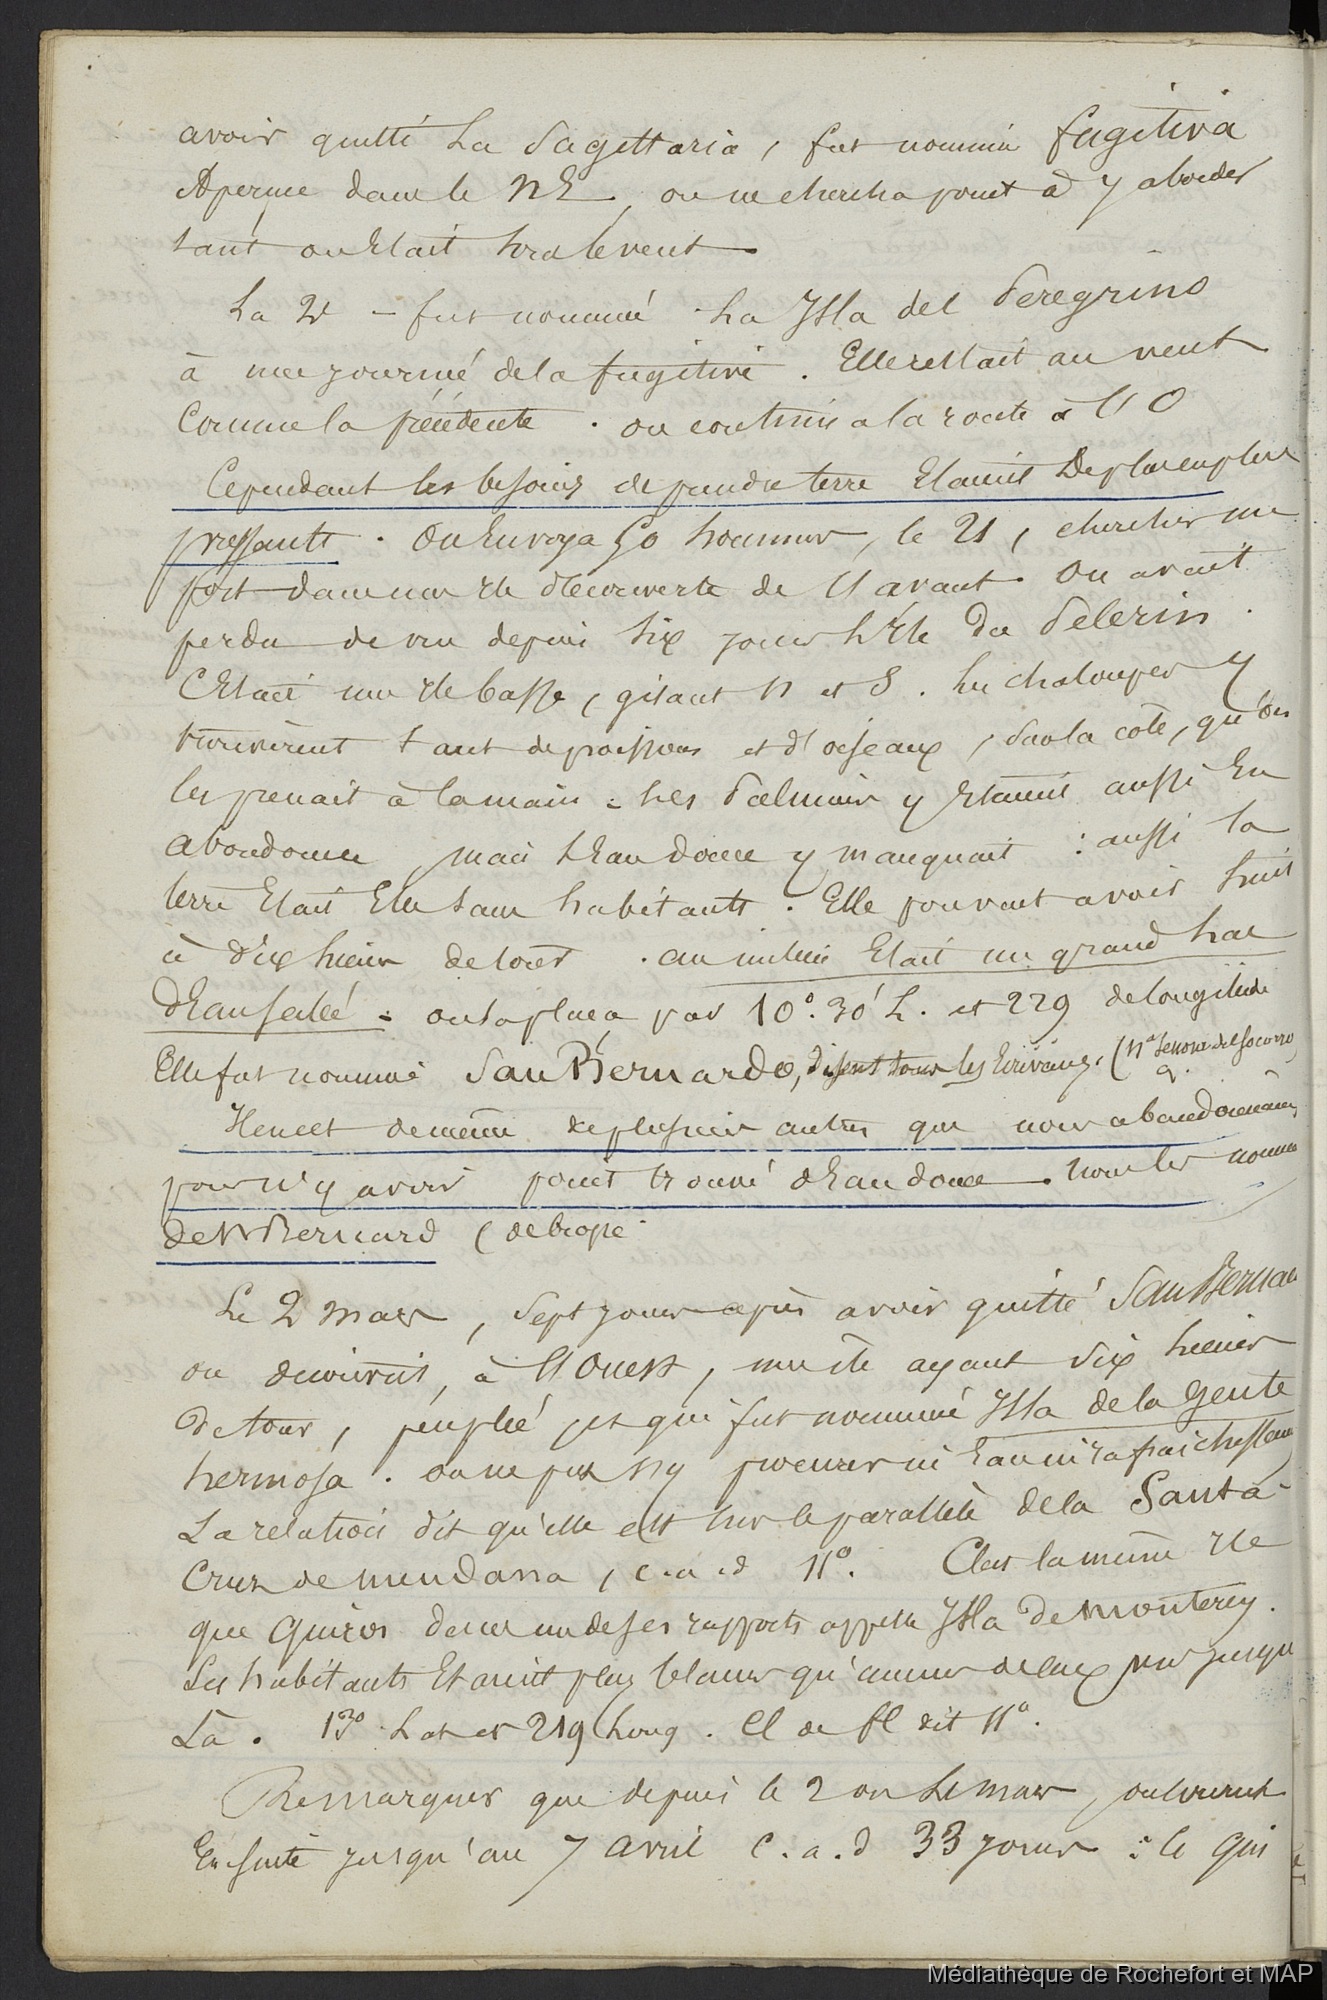 avoir quitté La Sagittaria, fut nommée fugitiva
Aperçue dans le NE, on ne chercha point à y aborder
tant on Etait sous le vent
La 2e – fut nommée La Isla del Peregrino
à une journée de la fugitive. Elle restait au vent
Comme la précédente. on continua la route à l'O
Cependant les besoins de prendre terre Etaient De plus en plus
pressants. On Envoya 50 hommes, le 21, chercher un
port dans une Ile découverte de l'avant. On avait
perdu de vue depuis six jours l'Ile du Pelerin.
C'Etait une Ile basse, gisant N et S. Les chaloupes y
trouvèrent tant de poissons et d'oiseaux, sur la cote, qu'on
les prenait à la main : Les Palmiers y Etaient aussi En
abondance mais l'Eau douce y manquait : aussi la
terre Etait Elle sans habitants. Elle pouvait avoir huit
à dix lieues de tour. au milieu Etait un grand Lac
d'Eau salée. on la plaça par 10°.30' L. et 229 de longitude
Elle fut nommée San Bernardo, disent tous les Ecrivains. (Na Senora del Socorro
Il en est de même de plusieurs autres que nous abandonnames
pour n'y avoir point trouvé d'Eau douce. nous les nommes
de St Bernard (
Le 2 mars, sept jours après avoir quitté San Bernar
on découvrit, à l'Ouest, une île ayant dix lieues
De tour, peuplée et qui fut nommée Isla de la Gente
hermosa. on ne put s'y procurer ni Eau ni rafraichissem
La relation dit qu'elle est sur le parallèle de la Santa
Cruz de mendana, c.a.d 11°. C'est la même Ile
que Quiros dans un de ses rapports appelle Isla De Monterey.
Les habitants Etaient plus blancs qu'aucuns de ceux vus jusque
Là. 13° Lat et 219 Long. Cl de fl dit 11°.
Remarquer que depuis le 2 ou Le mars, on courut
Ensuite jusqu'au 7 avril c.a.d 33 jours : le qui
Médiathèque de Rochefort et MAP